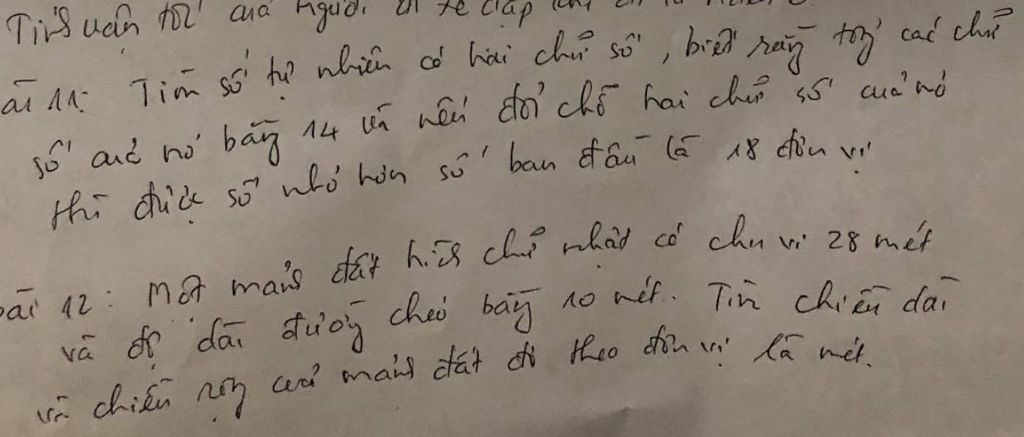 Tính vận tốc của người đi xe đạp khi đi từ
ài 11: Tìm số tự nhiên có hai chữ số, biết rằng tổng các chữ
số của nó bằng 14 và nếu đổi chỗ hai chữ số của nó
thì được số nhỏ hơn số ban đầu là 18 đơn vị
bài 12: Một mảnh đất hình chữ nhật có chu vi 28 mét
và độ dài đường chéo bằng 10 mét. Tìm chiều dài
và chiều rộng của mảnh đất đó theo đơn vị là mét.